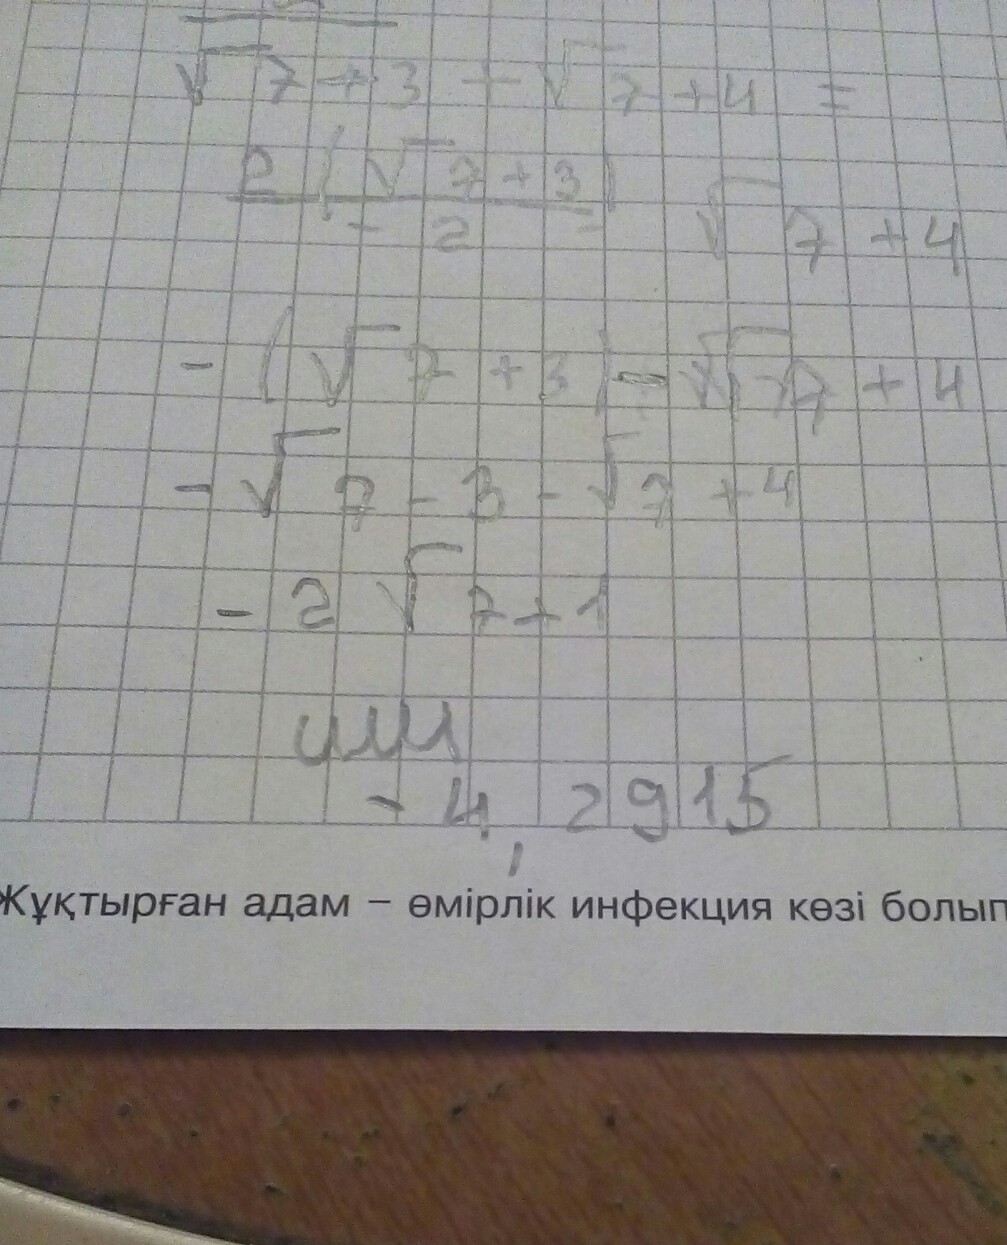 √7 + 3 + √7 + 4 =
2 (√7 + 3)
- 2 √7 + 4
- (√7 + 3) - √7 + 4
- √7 - 3 - √7 + 4
- 2 √7 + 1
или
- 4,2915
Жұқтырған адам – өмірлік инфекция көзі болып